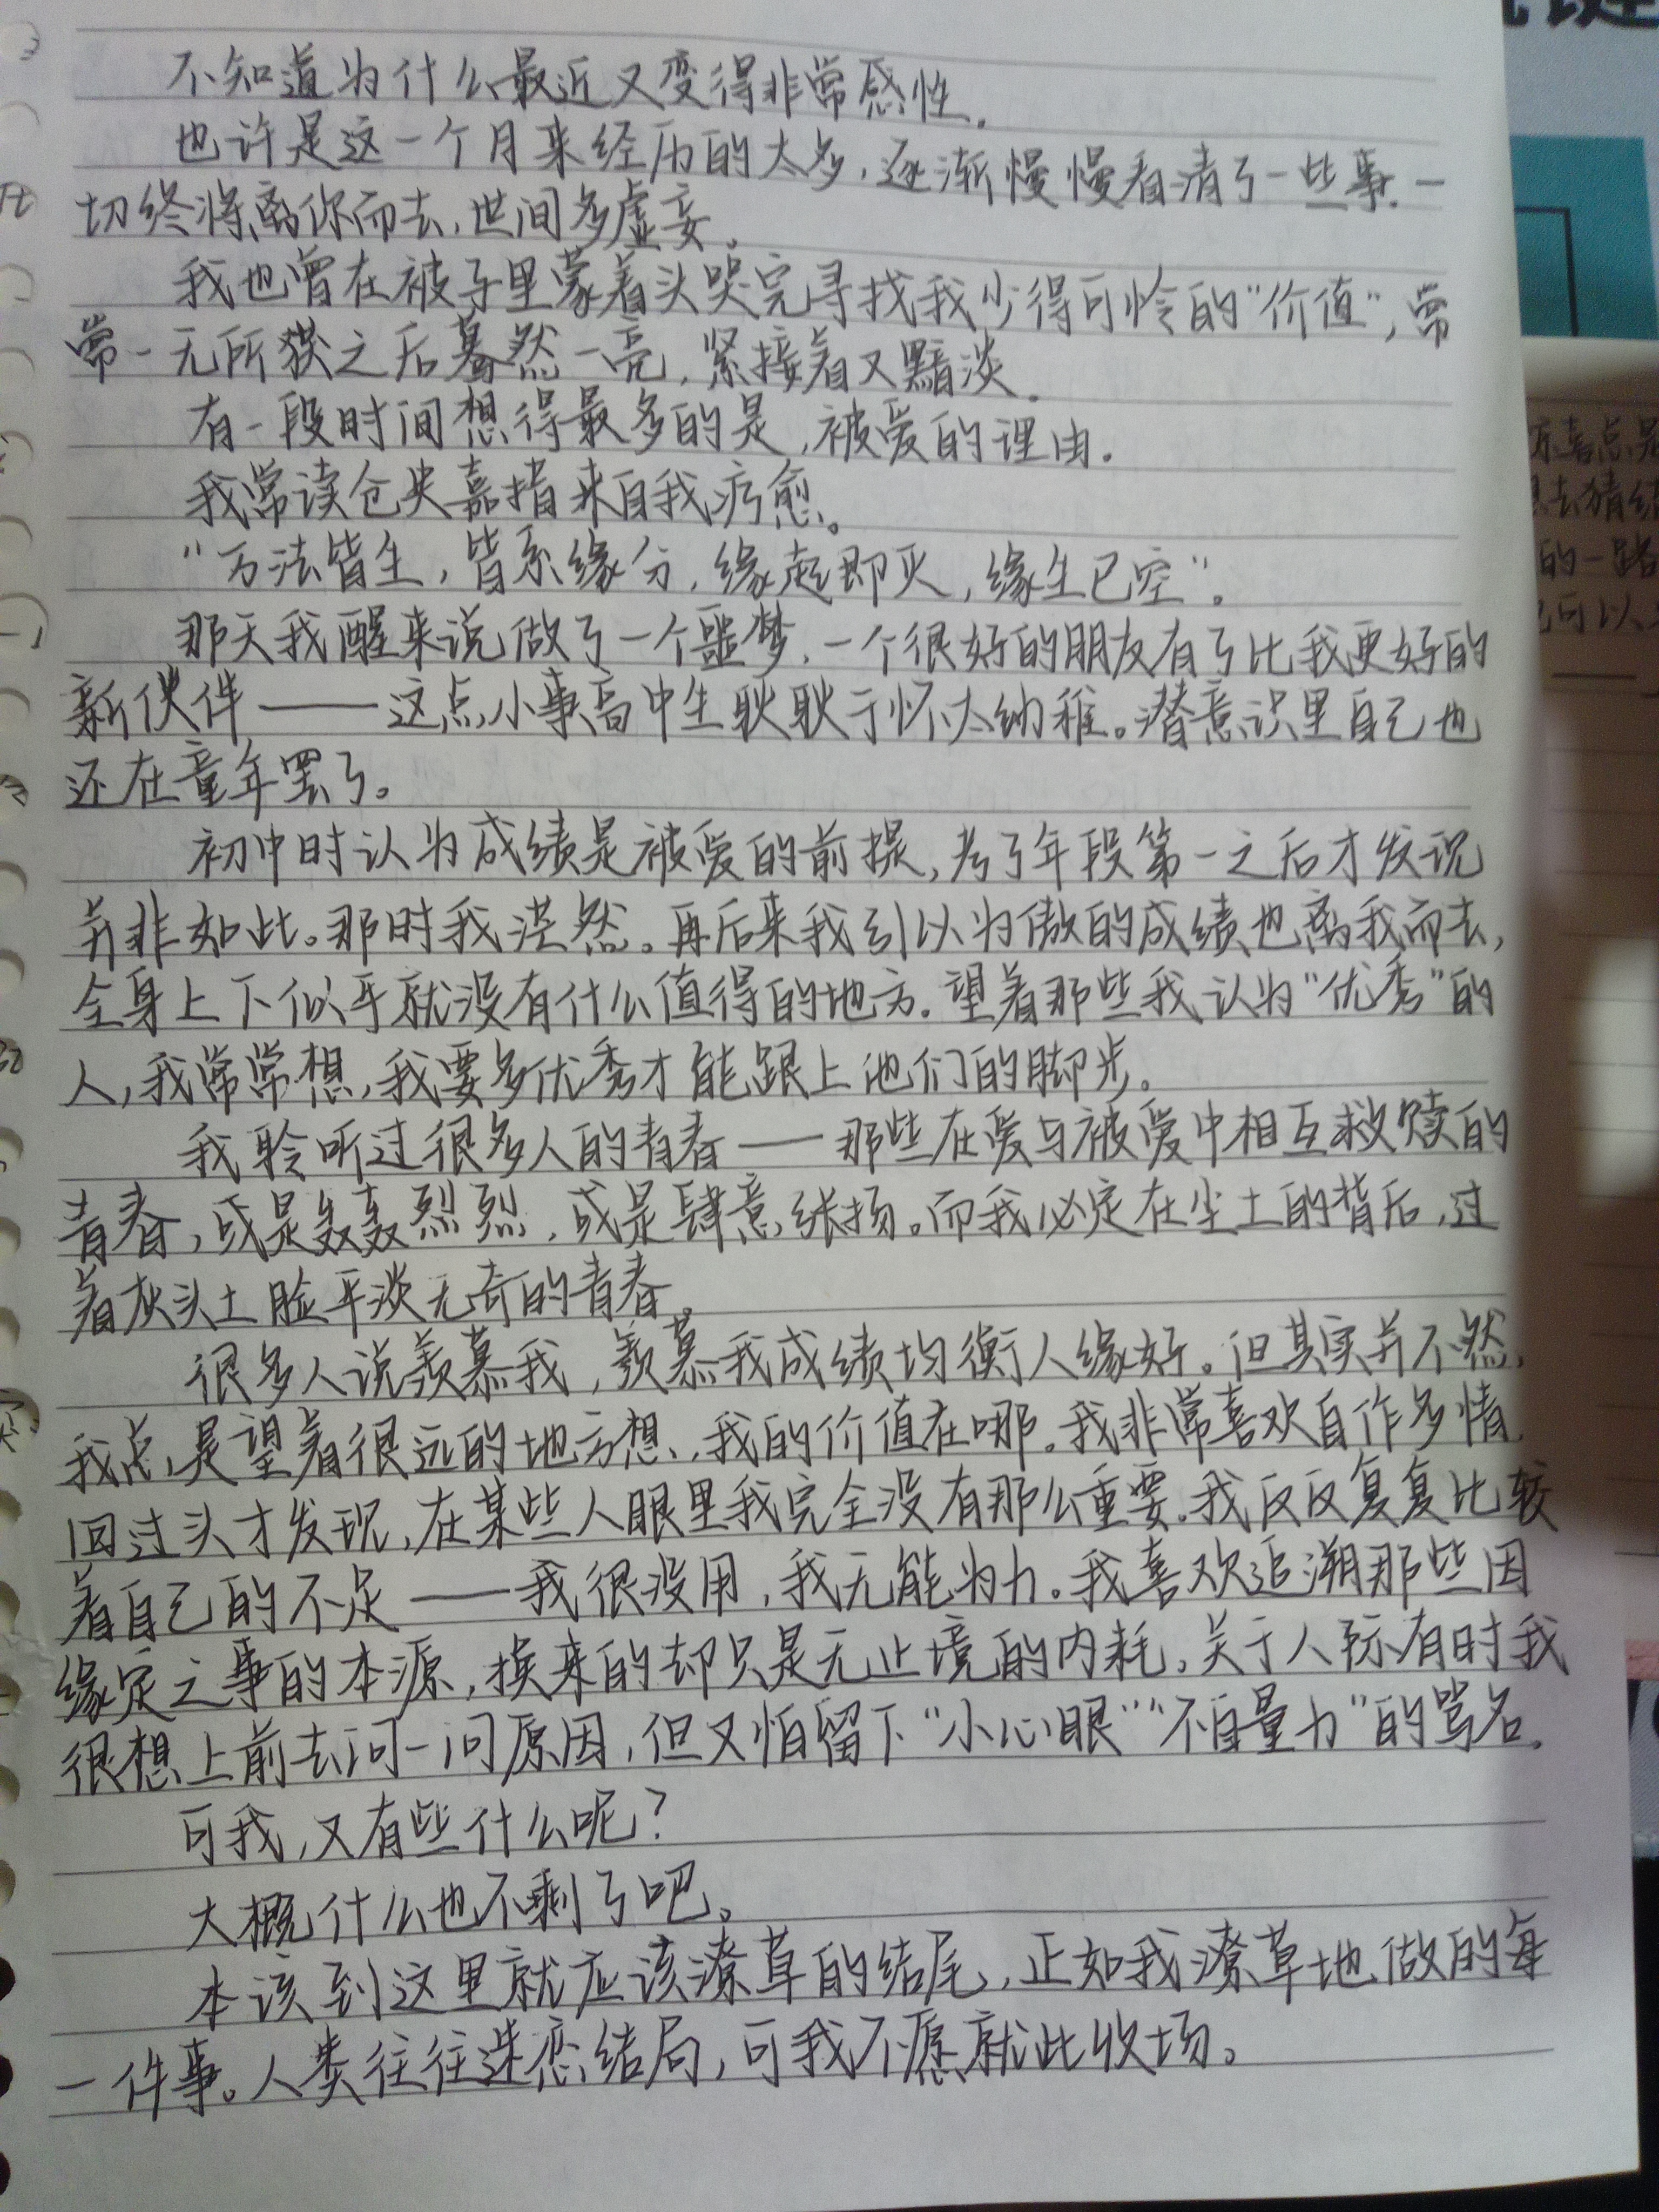 不知道为什么最近又变得非常感性.
也许是这一个月来经历的太多,逐渐慢慢看清了一些事.一
切终将离你而去,世间多虚妄。
我也曾在被子里蒙着头哭完寻找我少得可怜的"价值",常
常一无所获之后蓦然一亮,紧接着又黯淡.
有一段时间想得最多的是,被爱的理由.
我常读仓央嘉措来自我疗愈。
"万法皆生,皆系缘分,缘起即灭,缘生已空"。
那天我醒来说做了一个噩梦,一个很好的朋友有了比我更好的
新伙伴——这点小事高中生耿耿于怀太幼稚。潜意识里自己也
还在童年罢了。
初中时认为成绩是被爱的前提,考了年段第一之后才发现
并非如此。那时我茫然。再后来我引以为傲的成绩也离我而去,
全身上下似乎就没有什么值得的地方.望着那些我认为"优秀"的
人,我常常想,我要多优秀才能跟上他们的脚步。
我聆听过很多人的青春——那些在爱与被爱中相互救赎的
青春,或是轰轰烈烈,或是肆意张扬。而我必定在尘土的背后,过
着灰头土脸平淡无奇的青春。
很多人说羡慕我,羡慕我成绩均衡人缘好。但其实并不然,
我总是望着很远的地方想,我的价值在哪。我非常喜欢自作多情,
回过头才发现,在某些人眼里我完全没有那么重要.我反反复复比较
着自己的不足——我很没用,我无能为力。我喜欢追溯那些因
缘定之事的本源,换来的却只是无止境的内耗,关于人际有时我
很想上前去问一问原因,但又怕留下"小心眼""不自量力"的骂名.
可我,又有些什么呢?
大概什么也不剩了吧。
本该到这里就应该潦草的结尾,正如我潦草地做的每
一件事。人类往往迷恋结局,可我不愿就此收场。